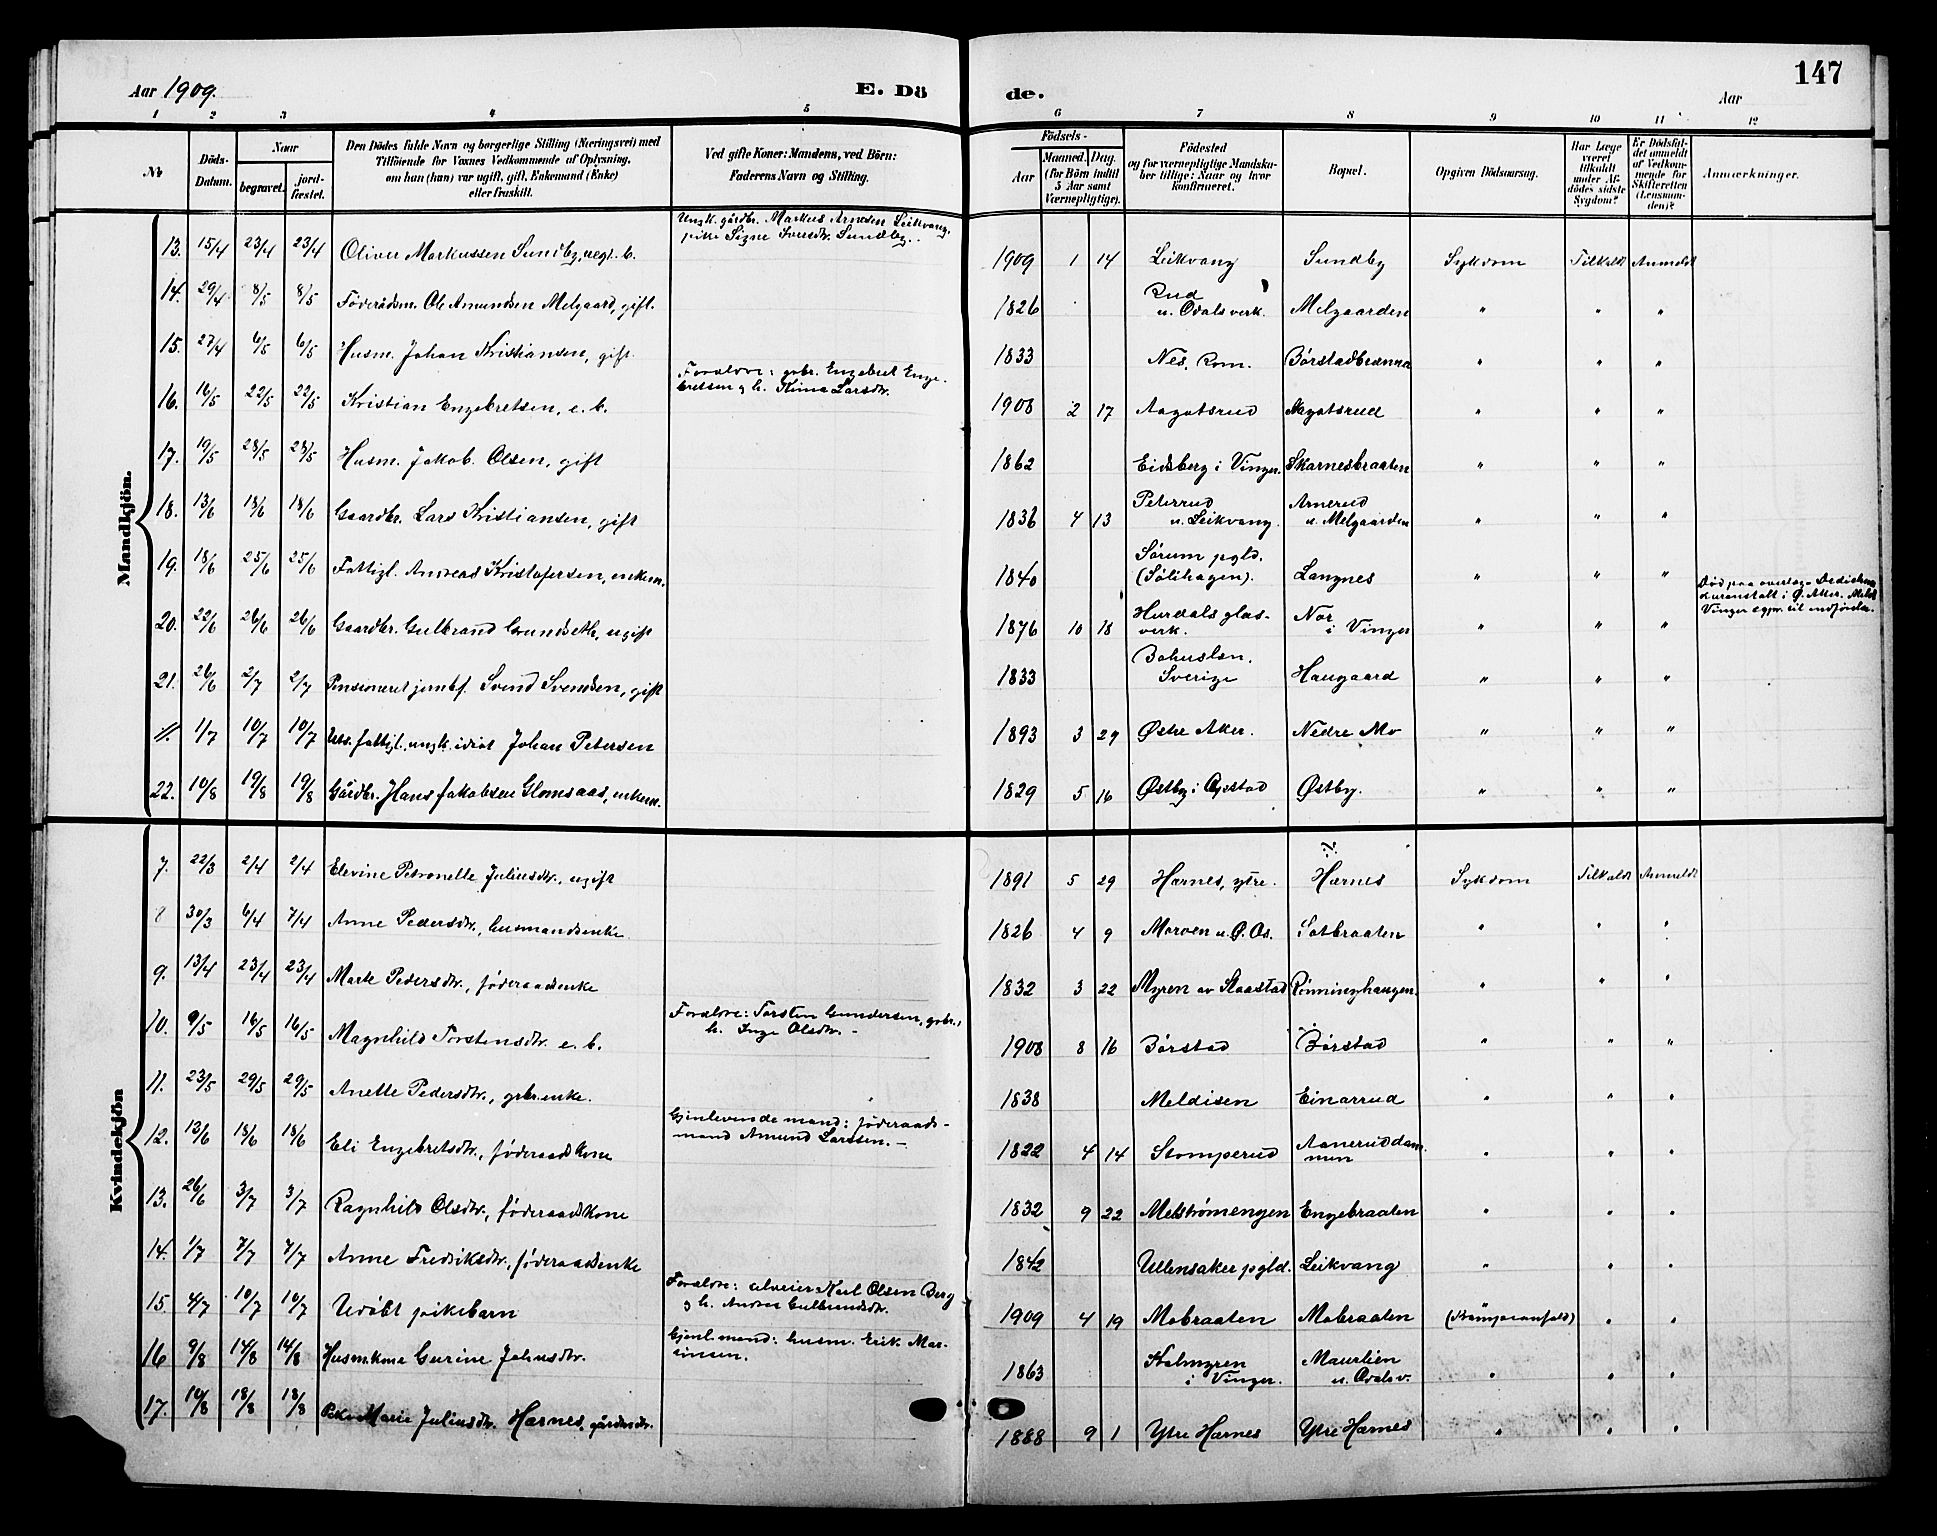 147
Aar 1909. E. Dö de. Aar
1 2 3 4 5 6 7 8 9 10 11 12
No Döds-Datum. Naar begravet. jordfæstet. Den Dödes fulde Navn og borgerlige Stilling (Næringsvei) med Tilföiende for Voxnes Vedkommende af Oplysning, om hun (han) var ugift, gift, Enkemand (Enke) eller fraskilt. Ved gifte Koner: Mandens, ved Börn: Faderens Navn og Stilling. Födsels- Aar Maaned. Dag. (for Börn indtil 5 Aar samt Værnepligtige). Födested og for værnepligtige Mandskaber tillige: Naar og hvor konfirmeret. Bopæl. Opgiven Dödsaarsag. Har Læge været tilkaldt under Afdödes sidste Sygdom? Er Dödsfaldet anmeldt af Vedkommende for Skifteretten (Lensmanden)? Anmærkninger.
Mandkjön.
13. 15/4 23/4 23/4 Oliver Markussen Sundby, uegt. b. Ungk. gårdbr. Markus Arnesen Leikvang, pike Signe Iversdtr. Sundby. 1909 1 14 Leikvang Sundby Sykdom Tilkaldt Anmeldt
14. 29/4 8/5 8/5 Föderådsm. Ole Amundsen Melgaard, gift. 1826 Rud u. Odals verk. Melgaarden " " "
15. 27/4 6/5 6/5 Husm. Johan Kristiansen, gift. 1833 Nes, Rom. Börstadbrænna " " "
16. 16/5 22/5 22/5 Kristian Engebretsen, e. b. Foraldre: grbr. Engebret Engebretsen og h. Larsdtr. 1908 2 17 Aagotsrud Aagotsrud " " "
17. 19/5 28/5 28/5 Husm. Jakob Olsen, gift 1862 Eidsberg i Vinger. Skarnesbraaten " " "
18. 13/6 18/6 18/6 Gaardbr. Lars Kristiansen, gift 1836 4 13 Peterrud u. Leikvang. Arnerud u. Melgaarden " " "
19. 18/6 25/6 25/6 Fattigl. Andreas Kristofersen, enkem. 1840 Sörum pgld. (Sölihagen). Langnes " " "
20. 22/6 26/6 26/6 Gaardbr. Gulbrand Grundseth, ugift 1876 10 18 Hurdals glasverk. Nor i Vinger " " " Död paa Dedichens kuranstalt i Ø. Aker. Meldt Vinger sgpr. til indförelse.
21. 26/6 2/7 2/7 Pensioneret jernbf. Svend Svendsen, gift 1833 Bohuslen, Sverige Haugaard " " "
11. 1/7 10/7 10/7 fattigl. ungk. idiot Johan Petersen 1893 3 29 Østre Aker. Nedre Mo " " "
22. 10/8 19/8 19/8 Gårdbr. Hans Jakobsen Glomsaas, enkem. 1829 5 16 Østby i Opstad Østby. " " "
Kvindekjön
7. 22/3 2/4 2/4 Elevine Petronelle Juliusdtr., ugift 1891 5 29 Harnes, ytre. Y. Harnes Sykdom Tilkaldt Anmeldt
8 30/3 6/4 7/4 Anne Pedersdtr., husmandsenke 1826 4 9 Moroen u. Ø. Os. Satbraaten " " "
9. 13/4 23/4 23/4 Marte Pedersdtr., föderaadsenke 1832 3 22 Myren av Slaastad Rönninghaugen. " " "
10. 9/5 16/5 16/5 Magnhild Torstensdtr. e. b. Foraldre: Torsten Gundersen, grbr., h. Inge Olsdtr. 1908 8 16 Börstad Börstad " " "
11. 23/5 29/5 29/5 Anette Pedersdtr., grbr.enke. 1838 Meldisen Einarrud " " "
12. 13/6 18/6 18/6 Eli Engebretsdtr., föderaadskone Gjenlevende mand: föderaadsmand Amund Larssen. 1822 4 14 Stomperud Aaneruddammen " " "
13. 26/6 3/7 3/7 Ragnhild Olsdtr., föderaadskone 1832 9 22 Melströmengen Engebraaten " " "
14. 1/7 7/7 7/7 Anne Fredriksdtr., föderaadsenke 1842 Ullensaker pgld. Leikvang " " "
15. 4/7 10/7 10/7 Udöbt pikebarn Foraldre: Karl Olsen Berg og h. Andrea Gulbrandsdtr. 1909 4 19 Mobraaten Mobraaten (Krampeanfald) " "
16 9/8 14/8 14/8 Husm.kone Gurine Johnsdtr. Gjenl. mand: husm. Erik Martinsen. 1863 Kalmyren i Vinger. Maurlien u. Odalsv. " " "
17. 14/8 18/8 18/8 Pike Marie Juliusdtr. Harnes, gårdmdtr. 1888 9 1 Ytre Harnes Ytre Harnes " " "